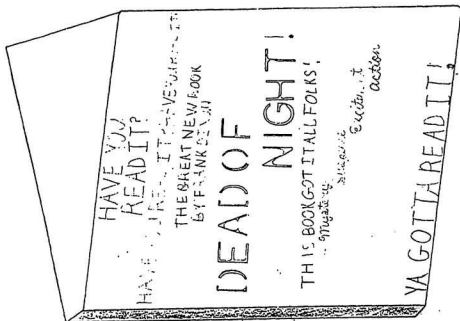 HAVE YOU
READ IT?
HAVE
THE GREAT NEW BOOK
BY FRANK
DEAD OF
NIGHT!
THIS BOOK GOT IT ALL FOLKS!
Mystery
action
YA GOTTA READ IT!